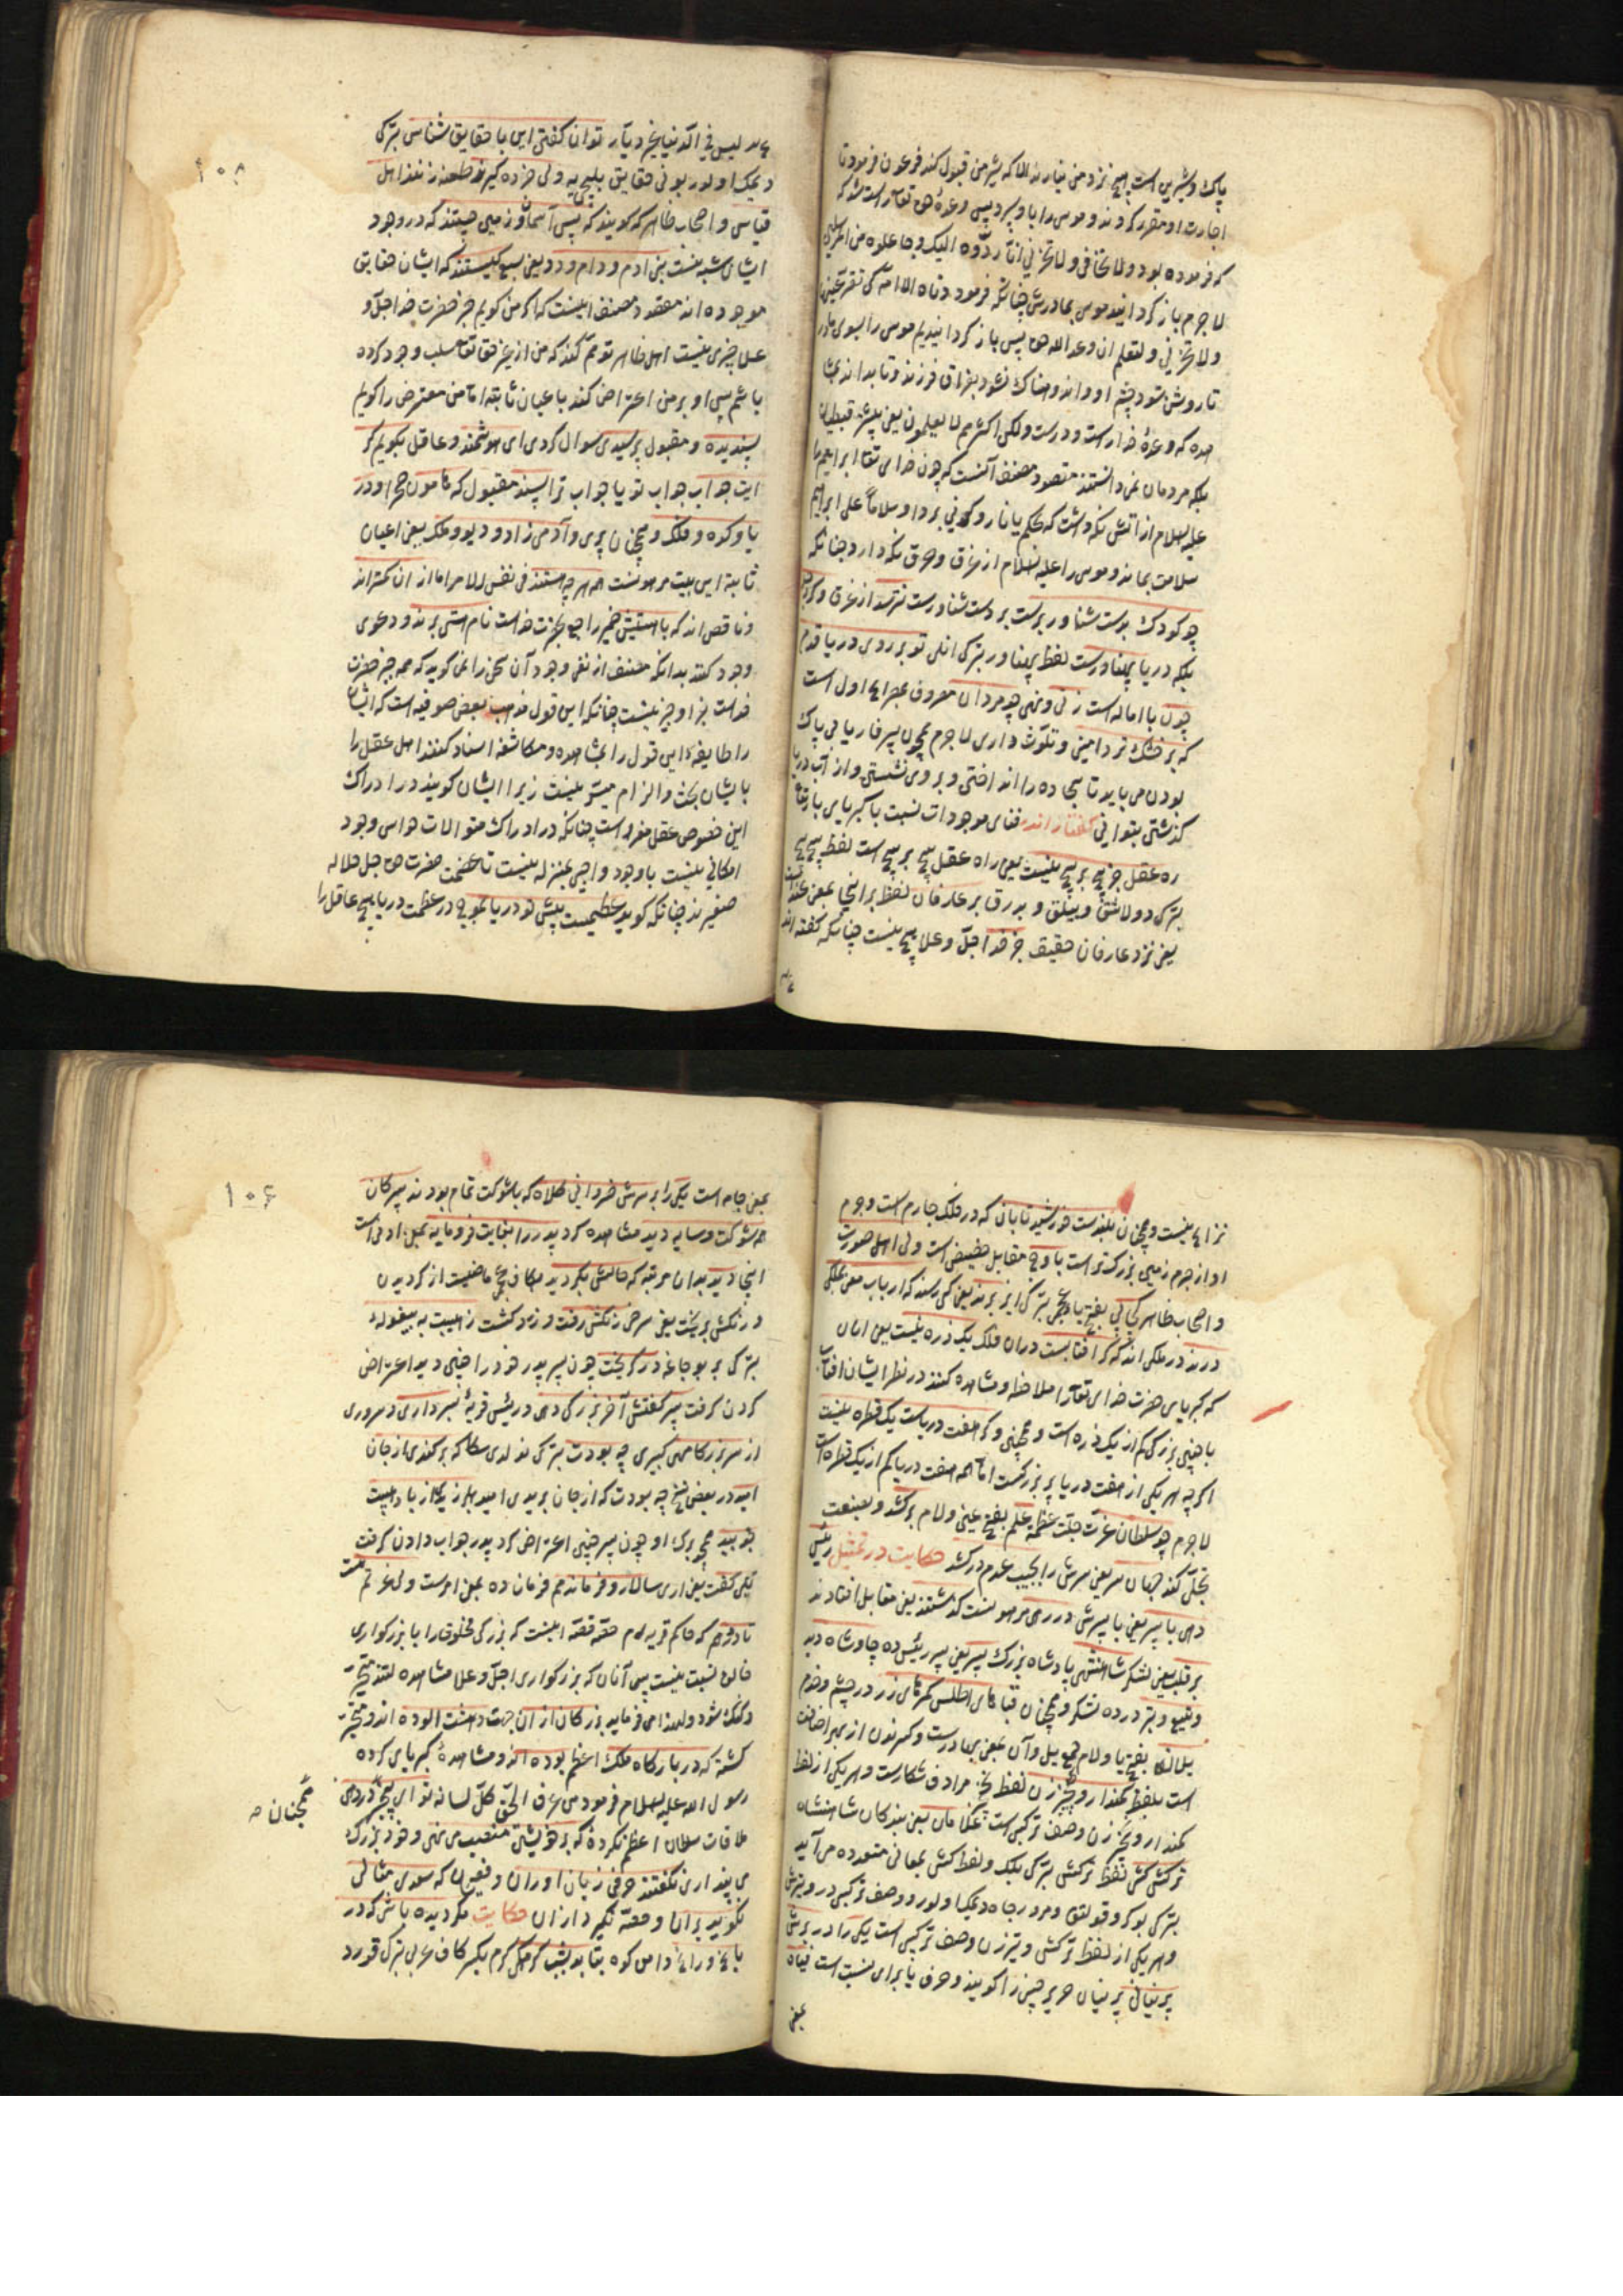 پاک و شیرین است هیچ نزد من نیارند الا که شیر من قبول کند فرعون فرمود تا
اجارت او مقرر کردند و موسی را باو سپرد پس وعدهٔ حق تعالی راست شد که
که فرموده بود ولا تخافی ولا تحزنی انا رادّوه الیک وجاعلوه من المرسلین
لا جرم باز کردانید موسی بمادرش چنانکه فرمود ددناه الی امه کی تقرّ عینها
ولا تحزن ولتعلم ان وعد الله حق پس باز کردانیدیم موسی را بسوی مادر
تا روشن شود چشم او و اندوهناک نشود بفراق فرزند و تا بداند
که وعدهٔ خدا راست و درست ولکن اکثرهم لا یعلمون یعنی بیشتر قبطیان
بلکه مردمان نمی دانستند مقصود مصنف آنست که چون خدای تعالی ابراهیم را
علیه السلام از آتش نکه داشت که بحکم یا نار کونی بردا وسلاما علی ابراهیم
سلامت بماند و موسی را علیه السلام از غرق و حرق نکه دارد چنانکه
چو کودک بدست شناور برست بردست شناورست نترسد از غرق وکر
بلکه دریا پهناورست لفظ پهناور بترکی انلی تو بر روی دریا قدم
چون با اماله است زنی و نهی چو مردان معروف بمصراع اول است
که بر خشک تر دامنی و تلوّث داری لا جرم همچون پیر فاریابی پاک
بودن می باید تا سجاده را انداختی و بروی نشستی و از آب دریا
کذشتی بتوانی گفتار اندر فنای موجودات نسبت با کبریای باری تعالی
ره عقل جز پیچ بر پیچ نیست یعنی راه عقل پیچ بر پیچ است لفظ پیچ پیچ
بترکی دولاشق و بر عارفان لفظ بر اینجا بمعنی عند است
یعنی نزد عارفان حقیقی جز خدا جلّ وعلا هیچ نیست چنانکه کفته اند
۱۰۸
لیس فی الدنیا غیره دیار توان کفتن این با حقایق شناس بترکی
دیمک اولور بونی حقایق بلیجیه ولی خرده کیرند طعنه زنند اهل
قیاس و اصحاب ظاهر که کویند که پس آسمان و زمین چیستند که در وجود
ایشان شبه نیست بنی ادم و دام و دد یعنی سبع کیستند که ایشان حقایق
موجوده اند مقصود مصنف اینست که اکر من کویم جز حضرت خدا جلّ و
علا چیزی نیست اهل ظاهر توهم کنند که من از غیر حق تعالی سلب وجود کرده
باشم پس او بر من اعتراض کند باعیان ثابته اما من معترض را کویم
پسندیده و مقبول پرسیدی سوال کردی ای هوشمند و عاقل بکویم کر
آیت جواب جواب تو یا جواب ترا پسند مقبول که هامون صحرا و در
یا و کوه و فلک و همچنان پری و آدمی زاد و دیو و ملک یعنی اعیان
ثابته این بیت مرهونست همه هرچه هستند فی نفس الامر اما از ان کمتر اند
و ناقص اند که با هستیش ضمیر راجع بحضرت خداست نام هستی برند و دعوی
وجود کنند بدانکه مصنف از نفی وجود آن سخن را نمی کوید که همه چیز حضرت
خداست جز او چیز نیست چنانکه این قول مذهب بعض صوفیه است که ایشان
را طایفهٔ این قول را بمشاهده و مکاشفه اسناد کنند اهل عقل را
بایشان بحث و الزام میسّر نیست زیرا ایشان کویند در ادراک
این خصوص عقل معزولست چنانکه در ادراک متوالات حواس وجود
امکانی نیست با وجود واجبی بمنزله نیست تا عظمت حضرت حق جلّ جلاله
صغیرند چنانکه کوید عظیمست پیش تو دریا بموج در عظمت دریا هیچ عاقل را
نزاع نیست و همچنان بلندست خورشید تابان که در فلک چهارم است و جرم
او از جرم زمین بزرک تر است باوج مقابل حضیض است ولی اهل صورت
و اصحاب ظاهر کجا پی بفتح یا عجمی بترکی ایز برند یعنی کی رسند که ارباب معنی بملکی
درند در ملکی اند که کر آفتابست در ان فلک یک ذره نیست یعنی انان
که کبریای حضرت خدای تعالی را ملاحظه و مشاهده کنند در نظر ایشان آفتاب
با چنین بزرکی کم از یک ذره است و همچنین و کر هفت دریاست یک قطره نیست
اکرچه هر یکی از هفت دریا پر بزرکست اما همه هفت دریا کم از یک قطره است
لا جرم چو سلطان عزت جلّت عظمته علم بفتح عین و لام برکشد و بصنعت
تجلّی کند جهان سر یعنی سرش را بجیب عدم درکشد حکایت در تمثیل رئیس
دهی با پسر یعنی با پسرش در رهی مرهونست کذشتند یعنی مقابل افتادند
بر قلب یعنی لشکر شاهنشهی پادشاه بزرک پسر یعنی پسر رئیس ده چاوشان دید
و تیغ و تبر در ده لشکر و همچنان قباهای اطلس کمرهای زر در چشم و خدم
یلان بفتح یا و لام جمع یل و آن بمعنی بهادرست و کسر نون از بهر اضافت
است بلفظ کماندار و نخچیر زن لفظ نخچیر مرادف شکارست و هر یکی از لفظ
کماندار و نخچیر زن وصف ترکیبی است غلامان یعنی بندکان شاهنشاه
ترکش کش لفظ ترکش بترکی بلک و لفظ کش بمعانی متعدده می آید
بترکی بوکر و قولتق و مرد رجاه دیمک اولور و وصف ترکیبی در و تیر زن
و هر یکی از لفظ ترکش و تیر زن وصف ترکیبی است یکی را در برش
پرنیانی پرنیان حریر چینی را کویند و حرف یا برای نسبت است قباه
بمعنی
۱۰۶
بمعنی جامه است یکی را بر سرش خسروانی کلاه که باشوکت تمام بودند پسر کان
همه شوکت و سایه دید مشاهده کرد پدر را بغایت فرومایه بمعنی ادنی است
اینجا دید بدان مرتبه که حالش بکردید بکاف عجمی ماضیست از کردیدن
و رنکش بریخت یعنی سرخی رنکش رفت و زرد کشت ز هیبت به بیغوله
بترکی بر بوجاغه در کریخت چون پسر پدر خود را چنین دید اعتراض
کردن کرفت پسر کفتش آخر بزرک دهی در رئیس قریهٔ بسرداری و سروری
از سر بزرکان مهی کبیری چه بودت بترکی نه اولدی سکا که برکندی از جان
امید در بعض نسخ چه بودت که از جان بریدی امید بلرزیدی از باد هیبت
چو بید همچو برک او چون پسر چنین اعتراض کرد پدر جواب دادن کرفت
بلی کفت یعنی اری سالار و فرماندهم فرمان ده بمعنی امرست ولی عزتم هست
تا در دهم که حاکم قریه ام حصّه قصّه اینست که بزرکی مخلوق را با بزرکواری
خالق نسبت نیست پس آنان که بزرکواری جلّ و علا مشاهده کنند متحیّر
و کنک شود ولهذا می فرماید بزرکان از ان جهت دهشت آلوده اند و متحیّر
کشته که در بارکاه ملک اعظم بوده اند و مشاهدهٔ کبریای کرده
رسول الله علیه السلام فرمود من عرف الحق کلّ لسانه تو ای بیخبر در دهی
همچنان
ملاقات سلطان اعظم نکردهٔ که بر خویشتن منصب می نهی و خود بزرک
می پنداری نکفتند حرفی زبان اوران و فصیحان که سعدی مثالی
نکوید بران و قصه نکیرد از ان حکایت مکر دیده باشی که در
باغ و راغ دامن کوه بتابد بشب کرمکی کرم بکسر کاف عربی بترکی قورد